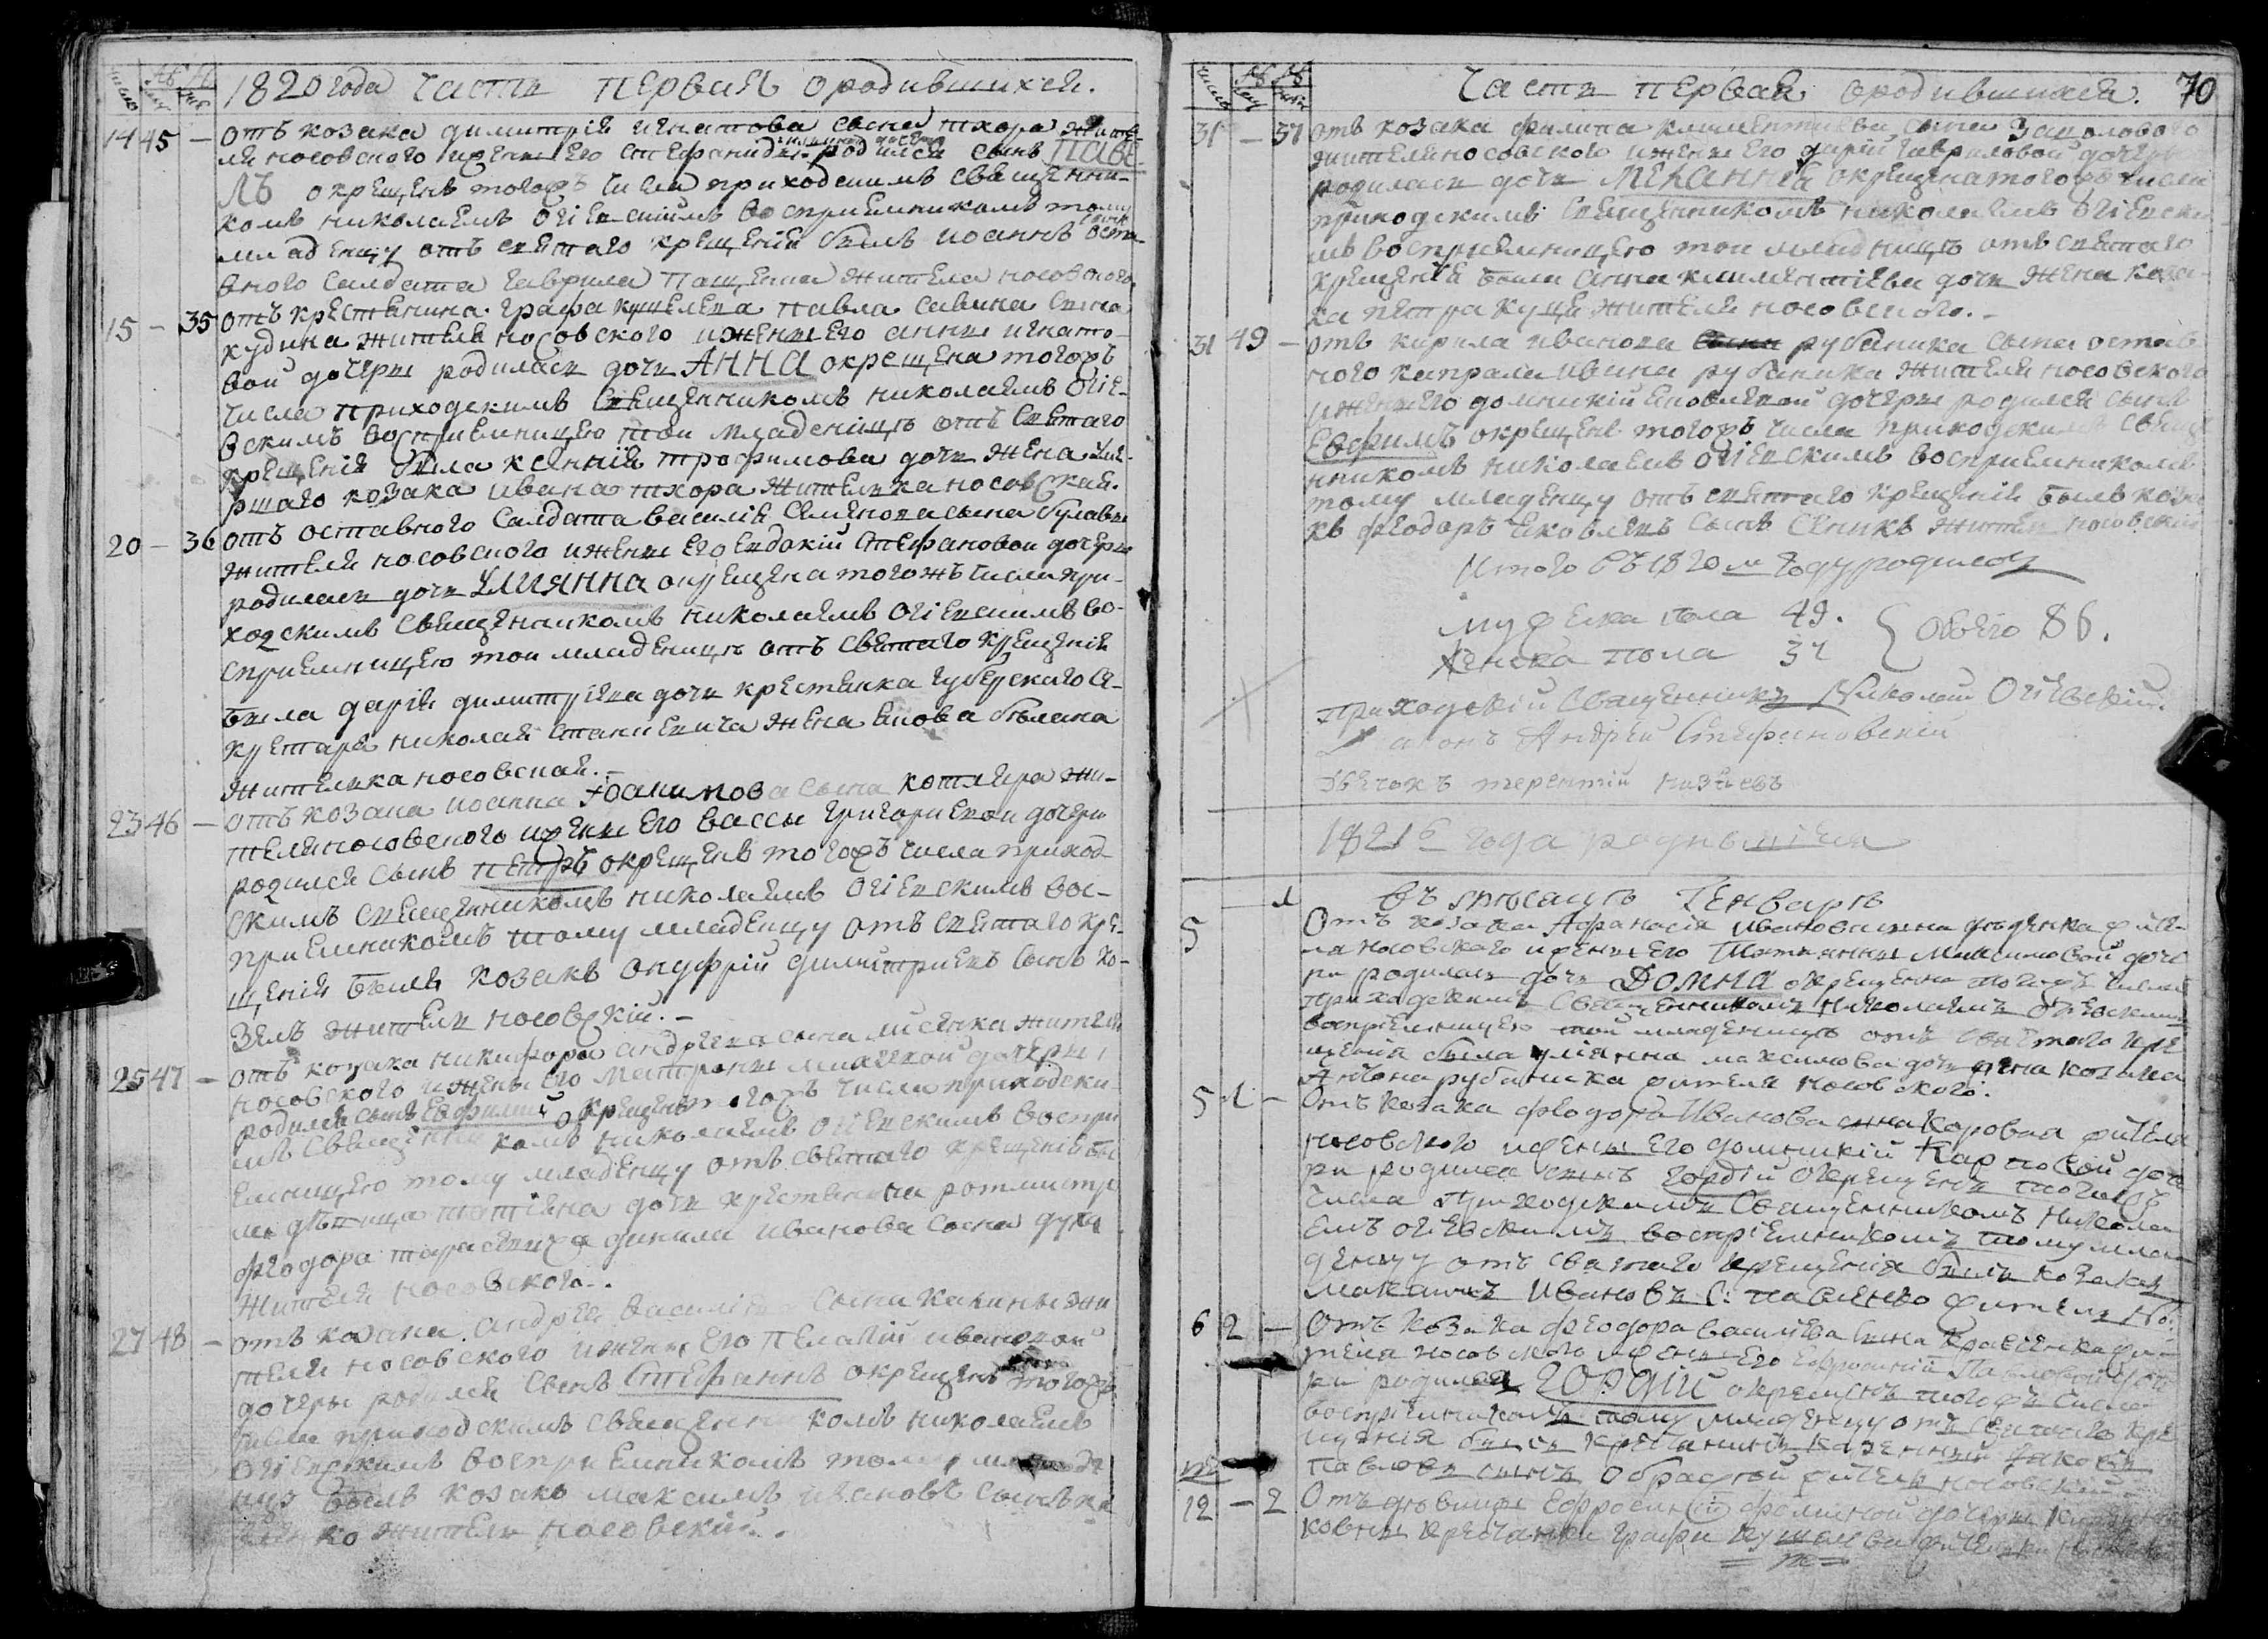 1820 года часть первая о родившихся.
14 45 — отъ козака димитрія игнатова сына тхора жите
ля носовского и жены его стефаниды родился сынъ ПАВЕ
ЛЪ окрещенъ тогожъ числа приходскимъ священни-
комъ николаемъ огіевскимъ воспріемникомъ тому
младенцу отъ святаго крещенія былъ иоаннъ оста-
вного салдата гаврила пащенка жителя носовского
15 — 35 отъ крестянина графа кушелева павла савина сына
кудина жителя носовского и жены его анны игнато-
вой дочеры родилася дочь АННА окрещена тогожъ
числа приходскимъ священникомъ николаемъ огіе-
вскимъ воспріемницею той младеницѣ отъ святаго
крещенія была ксенія трофимова дочь жена уме-
ршаго козака ивана тхора жителька носовская.
20 — 36 отъ оставного салдата василія семенова сына булавы
жителя носовского и жены его евдокіи стефановой дочеры
родилася дочь УЛИЯННА окрещена тогожъ числа при-
ходскимъ священникомъ николаемъ огіевскимъ во-
спріемницею той младеницѣ отъ святаго крещенія
была дарія димитріева дочь крестянка губерскаго се-
кретаря николая жена
жителька носовская.
23 46 — отъ козака иоанна иоакимова сына котляра жи-
теля носовского и жены его вассы григориевой дочеры
родился сынъ петръ окрещенъ тогожъ числа приход-
скимъ священникомъ николаемъ огіевскимъ вос-
приемникомъ тому младенцу отъ святаго кре-
щенія былъ козакъ онуфрій димитриевъ сынъ ко-
зелъ житель носовскій. —
25 47 — отъ козака никифора андреева сына лисенка жителя
носовского и жены его матроны дочеры
родился сынъ Евфимий окрещенъ тогожъ числа приходски
мъ священникомъ николаемъ огіевскимъ воспри
емницею тому младенцу отъ святаго крещенія бы
ла дѣвица татіана дочь крестянина ротмистра
феодора тарасевича данила иванова сына
жителя носовского.
27 48 — отъ козака андрея василіева сына калины жи
теля носовского и жены его пелагіи ивановой
дочеры родился сынъ Стефаннъ окрещенъ тогожъ
числа приходскимъ священникомъ николаемъ
огіевскимъ воспріемникомъ тому
былъ козакъ максимъ ивановъ сынъ
ко житель носовскій.
Часть первая о родившихся. 70
31 — 37 отъ козака филипа климентиева сына
жителя носовского и жены его даріи гавриловой дочеры
родилася дочь МЕЛАННІЯ окрещена тогожъ числа
приходскимъ священникомъ николаемъ огіевски
мъ воспріемницею той младеницѣ отъ святаго
крещенія была анна климентіева дочь жена коза-
ка петра куща жителя носовского. —
31 49 — отъ кирила иванова рубаника сына остав
ного капрала ивана рубаника жителя носовского
и жены его домникіи яковлевой дочеры родился сынъ
Евфимъ окрещенъ тогожъ числа приходскимъ свяще
нникомъ николаемъ огіевскимъ воспріемникомъ
тому младенцу отъ святаго крещенія былъ коза
къ феодоръ яковлевъ сынъ сеникъ житель носовскій
Итого въ 1820 м году родилось
мужеска пола 49.
женска пола 37 } обоего 86.
приходскій священникъ Николай Огіевскій.
Діаконъ Андрей Стефановскій
Дьячокъ терентій
1821 года родившіеся
въ мѣсяцѣ Генварѣ
5 1 Отъ козака Афанасія иванова сына жите
ля носовского и жены его Татіянны Максимовой доче
ри родилася дочь ДОМНА окрещенна тогожъ числа
приходскимъ Священникомъ Николаемъ Огіевскимъ
воспріемницею той младеницѣ отъ Святаго кре
щенія была улиянна максимова дочь жена козака
Антона рубаника жителя носовского.
5 1 — Отъ козака феодора Иванова сына Коровая жителя
носовского и жены его домникіи Карповой доче
ри родился сынъ Гордій окрещенъ тогожъ
числа Приходскимъ Священникомъ Никола
емъ огіевскимъ воспріемникомъ тому мла-
денцу отъ святаго крещенія былъ козакъ
Максимъ Ивановъ С: павленко житель но:
6 2 — Отъ козака феодора василіева сына кравченка жи-
теля носовского и жены его Ефросиніи Павловой доче
ри родился ГОРДІЙ окрещенъ тогожъ числа
воспріемникомъ тому младенцу отъ святаго кре
щенія былъ крестянинъ казенный
павловъ сынъ житель носовскій.
12 — 2 Отъ дѣвицы Ефросиніи фоминой дочери
крестянки графа кушелева жительки